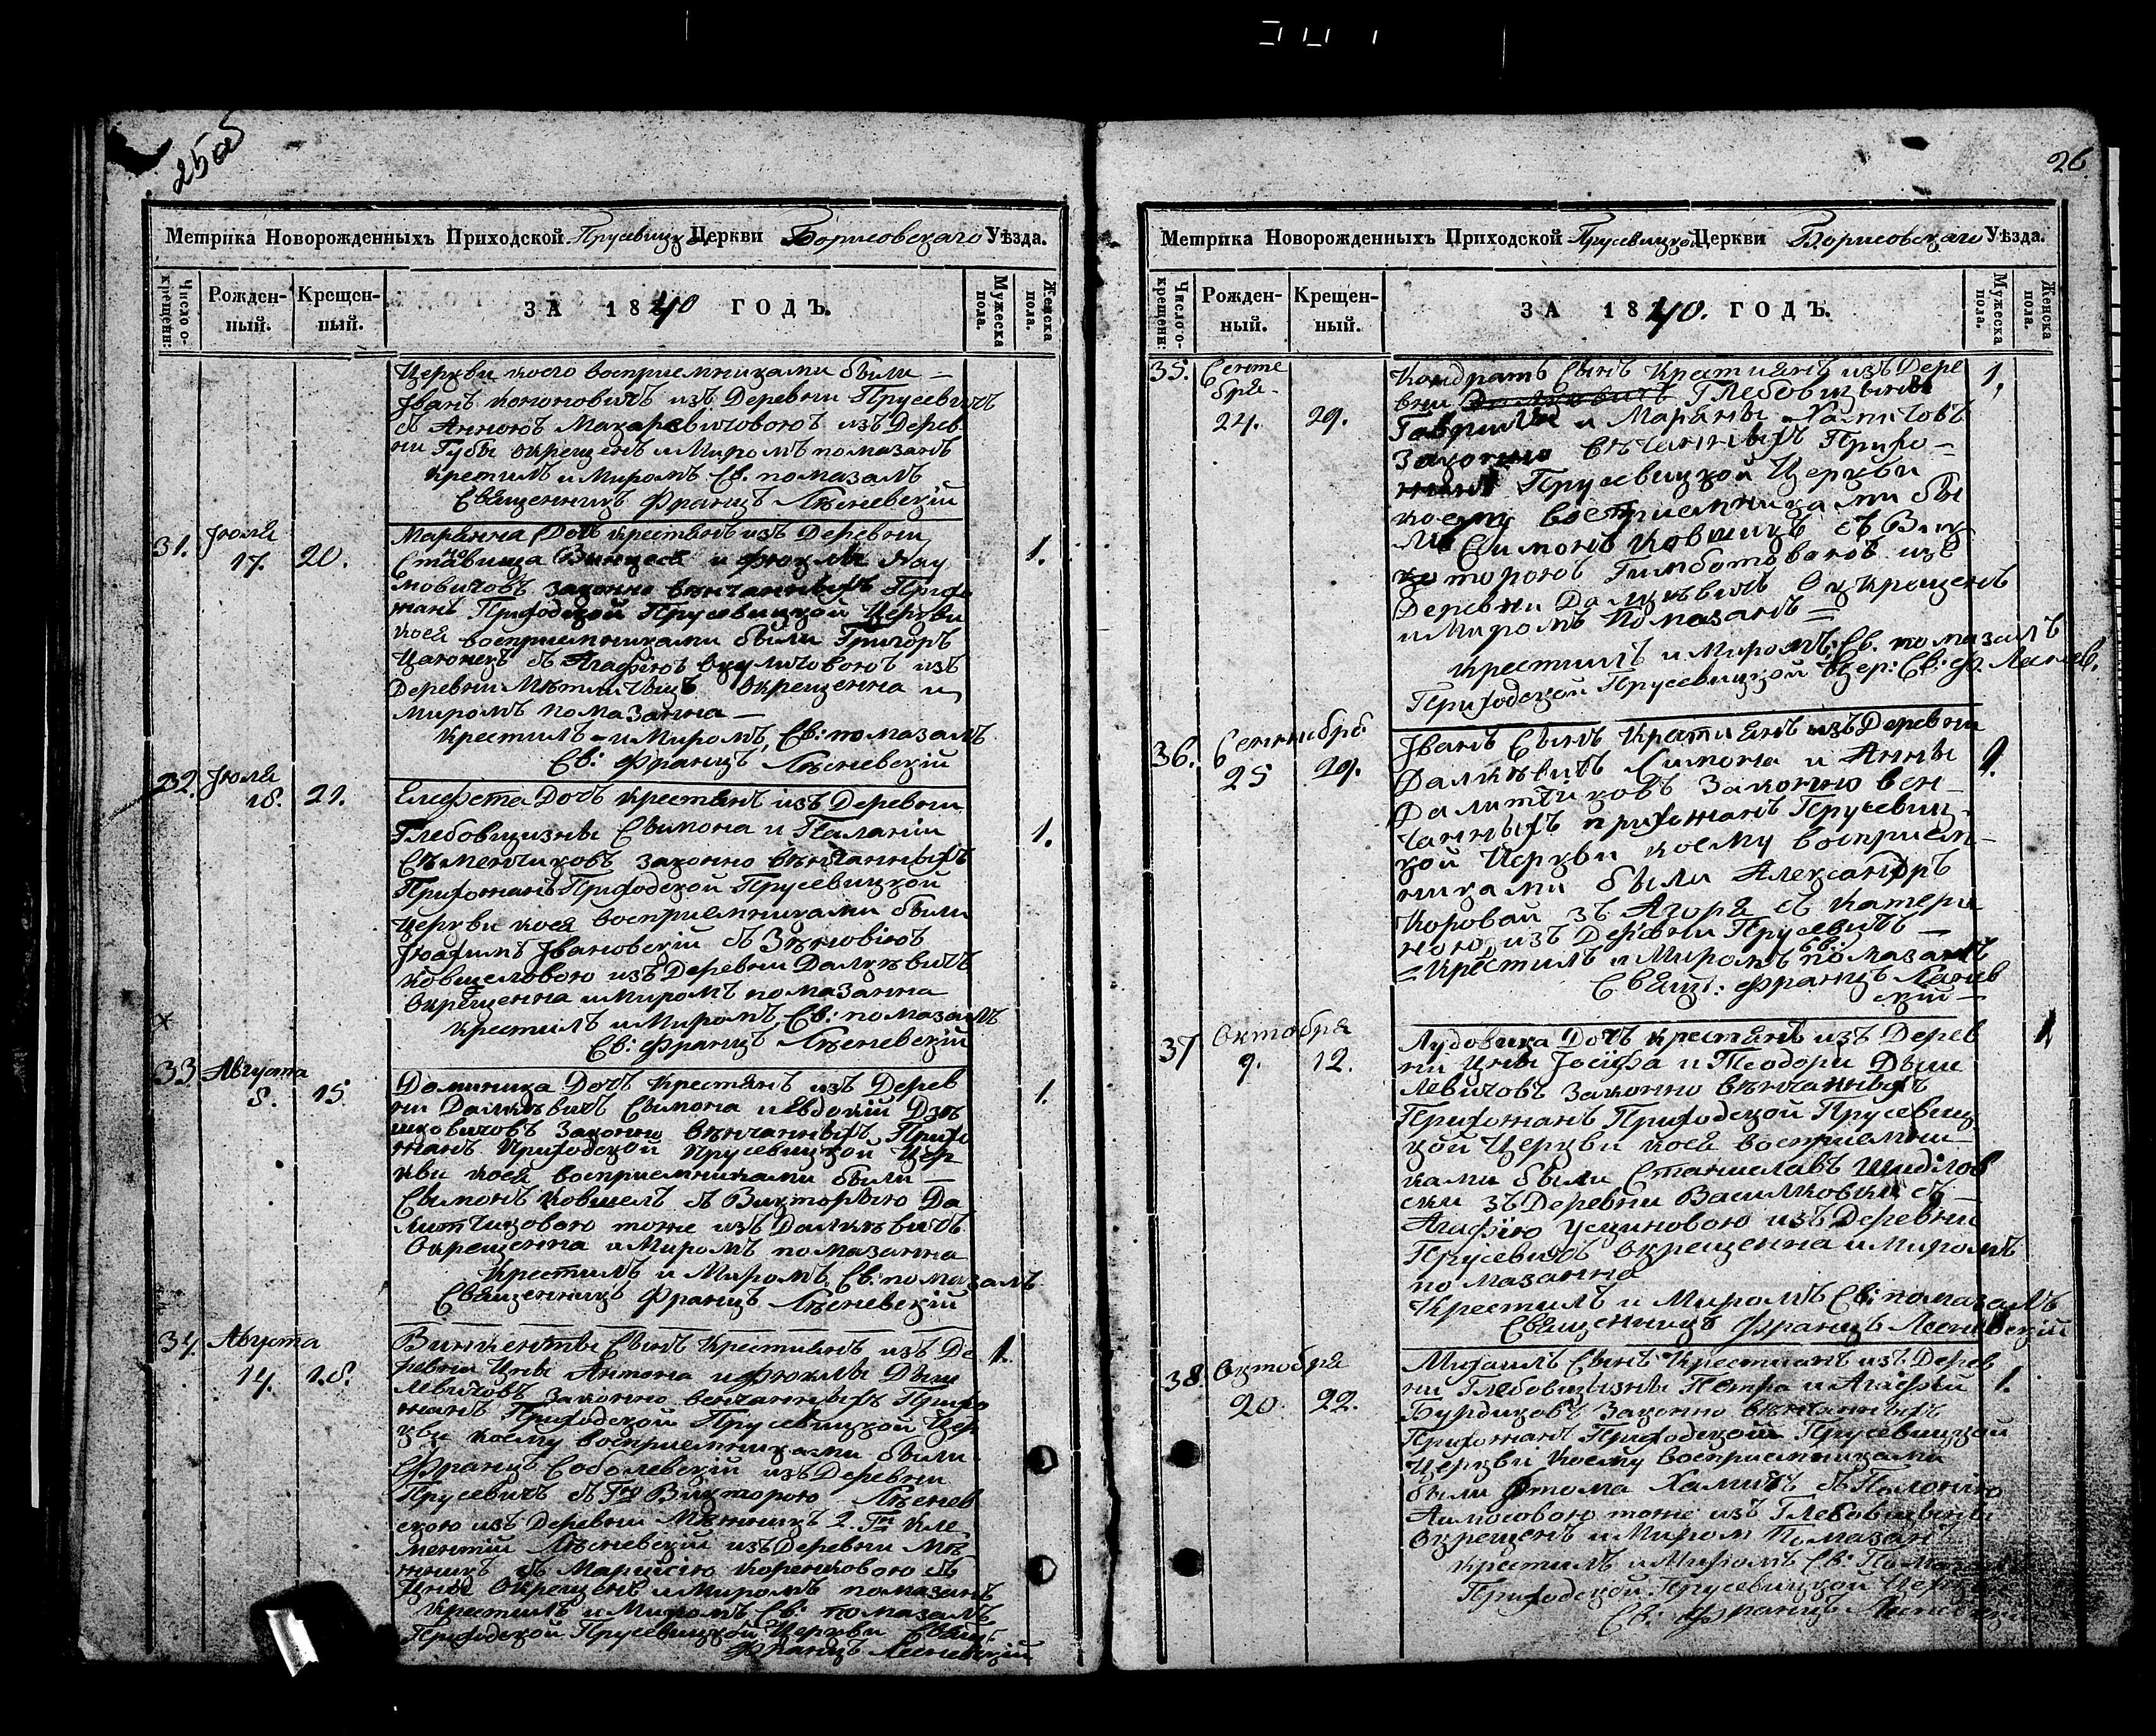 25об
Метрика Новорожденныхъ Приходской Прусевицкой Церкви Борисовскаго Уѣзда.
Число о-крещенн: Рожден-ный. Крещен-ный. ЗА 1840 ГОДЪ. Мужеска пола. Женска пола.
Церкви коего восприемниками были —
Іванъ Кононовичъ изъ Деревни Прусевичъ
съ Анною Макаревичовою изъ Дерев
ни Губы окрещенъ и Миромъ помазанъ
Крестилъ и Миромъ Св. помазалъ
Священникъ Францъ Лѣсневскій
31. Іюля 17. 20. 1.
Маріянна Дочъ крестянъ изъ Деревни
Ставища Винцеса и Фѣклы Нау
мовичовъ законно вѣнчанныхъ Прихо
жанъ Приходской Прусевицкой Церкви
коея восприемниками были Григоръ
съ Агафіею изъ
Деревни Окрещенна и
Миромъ помазанна —
Крестилъ и Миромъ Св: помазалъ
Св: Францъ Лѣсневскій
32. Іюля 18. 21. 1.
Дочъ крестянъ изъ Деревни
Глебовщизны Сымона и Паланіи
Сѣменчиковъ законно вѣнчанныхъ
Прихожанъ Приходской Прусевицкой
Церкви коея восприемниками были
Іоахимъ Івановскій съ Зѣновіею
Ковшеловою изъ Деревни Далькѣвичъ
Окрещенна и Миромъ помазанна
Крестилъ и Миромъ Св: помазалъ
Св: Францъ Лѣсневскій
33. Августа 8. 15. 1.
Доминика Дочъ крестянъ изъ Дерев
ни Далькѣвичъ Сымона и Евдокіи Дзѣ
шковичовъ законно вѣнчанныхъ Прихо
жанъ Приходской Прусевицкой Цер
кви коея восприемниками были —
Сымонъ Ковшелъ съ Викторыею Да
литчиковою тоже изъ Далькѣвичъ
Окрещенна и Миромъ помазанна
Крестилъ и Миромъ Св: помазалъ
Священникъ Францъ Лѣсневскій
34. Августа 14. 18. 1.
Викентъы Сынъ Крестиянъ изъ Де
ревни Цны Антона и Фѣклы Дыш
левичовъ законно венчанныхъ Прихо
жанъ Приходской Прусевицкой Цер
кви коему восприемниками были
Францъ Соболевскій изъ Деревни
Прусевичъ съ Гжо Викторою Лѣснев
скою изъ Деревни 2. Гнъ Кле
ментій Лѣсневскій изъ Деревни
съ Марцѣлію Коренковою съ
Цной Окрещенъ и Миромъ помазанъ
Крестилъ и Миромъ Св: помазалъ
Приходской Прусевицкой Церкви Свящ:
Францъ Лесневскій
26
Метрика Новорожденныхъ Приходской Прусевицкой Церкви Борисовскаго Уѣзда.
Число о-крещенн: Рожден-ный. Крещен-ный. ЗА 1840. ГОДЪ. Мужеска пола. Женска пола.
35. Сентебря 24. 29. 1.
Кондратъ Сынъ Крестиянъ изъ Дере
вни Глебовщизны
Гаврилы и Маряны Хамичовъ
законно вѣнчанныхъ Прихо-
жанъ Прусевицкой Церкви
коему восприемниками бы
ли Симонъ Ковшикъ съ Вик
торою изъ
Деревни Далькѣвичъ Окрещенъ
и Миромъ Помазанъ —
Крестилъ и Миромъ Св. помазалъ
Приходской Прусевицкой Цер: Св: Ф. Ласнев.
36. Сентибра 25 29. 1.
Іванъ Сынъ Крестиянъ изъ Деревни
Далькѣвичъ Симона и Анны
Далитчиковъ Законно вен-
чанныхъ прихожанъ Прусевиц-
кой Церкви коему восприем-
никами были Александръ
Коровай зъ съ Катери
ною изъ Деревни Прусевичъ —
Крестилъ и Миромъ Св: помазалъ
Свящ: Францъ Леснев
скій —
37 Октобря 9. 12. 1.
Лудовика Дочъ крестянъ изъ Дерев
ни Цны Іосифа и Теодори Дыш
левичовъ Законно вѣнчанныхъ
Прихожанъ Приходской Прусевиц
кой Церкви коея восприемни-
ками были Станиславъ Шидлов
ски зъ Деревни Васильковки съ —
Агафіею изъ Деревни
Прусевичъ Окрещенна и Миромъ
помазанна
Крестилъ и Миромъ Св: помазалъ
Священникъ Францъ Лесневскій
38. Октобря 20. 22. 1.
Михаилъ Сынъ Крестиянъ изъ Дерев
ни Глебовщизны Петра и Агафіи
Бурдиковъ Законно вѣнчанныхъ
Прихожанъ Приходской Прусевицкой
Церкви коему восприемниками
были Фтома Хамичъ съ Полонію
тоже изъ Глебовщизны
Окрещенъ и Миромъ Помазанъ
Крестилъ и Миромъ Св: Помазалъ
Приходской Прусевицкой Церкви
Св: Францъ Лесневскій